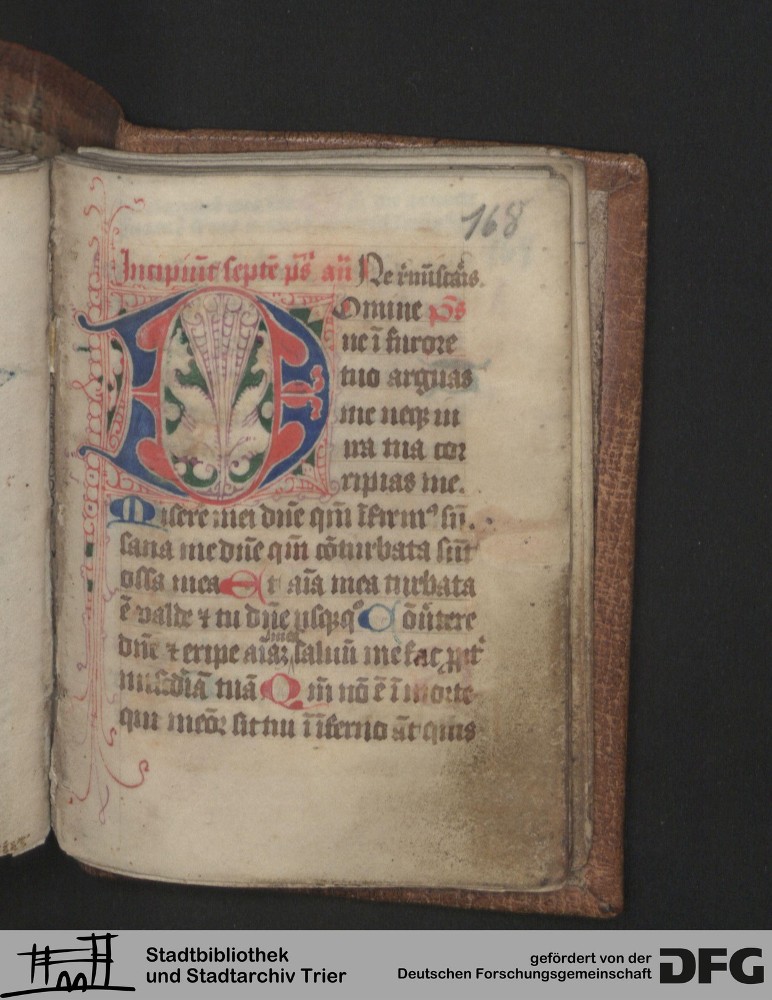 168
Incipiūt septē ps̄ an̄ Ne rīmīscaris
Domine ps̄
ne ī furore
tuo arguas
me neqꝫ in
ira tua cor
ripias me.
Misere mei dn̄e qm̄ īfirmꝰ sū.
sana me dn̄e qm̄ cōturbata sūt
ossa mea Et aīa mea turbata
ē valde ⁊ tu dn̄e usqꝫqͦ Cōūtere
meā
dn̄e ⁊ eripe aīaꝫ saluū me fac ꝓpt̄
mīscdiā tuā Qm̄ nō ē ī morte
qui meōꝝ sit tui ī īferno āt quis
Stadtbibliothek
und Stadtarchiv Trier
gefördert von der
Deutschen Forschungsgemeinschaft
DFG